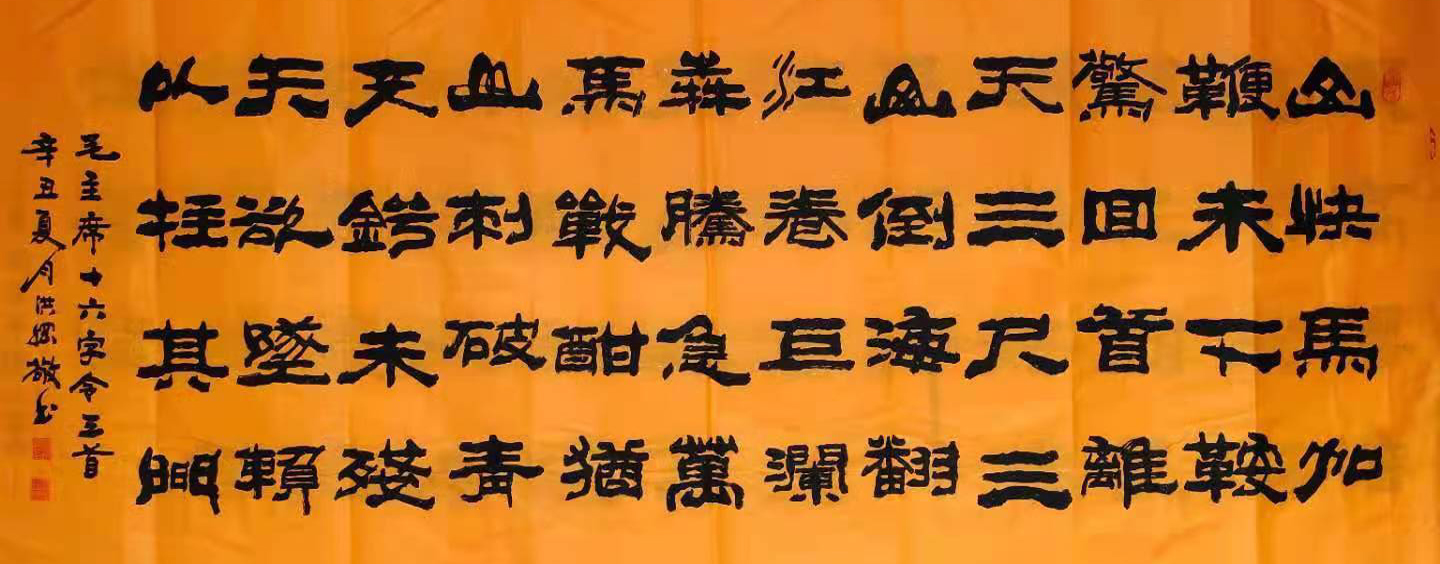 山快馬加
鞭未下鞍
驚回首離
天三尺三
山倒海翻
江卷巨瀾
奔騰急萬
馬戰酣猶
山刺破青
天鍔未殘
天欲墜賴
以拄其間
毛主席十六字令三首
辛丑夏月洪敬书